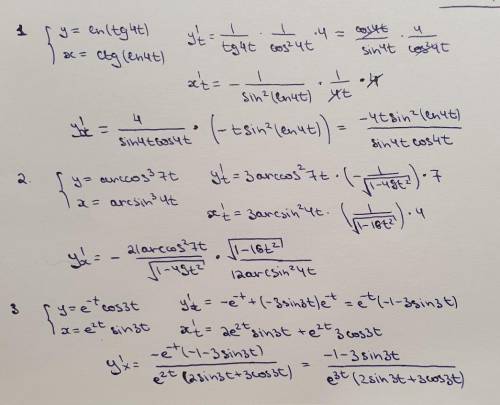 1 { y = ln(tg4t)   y't = 1/tg4t · 1/cos²4t · 4 = cos4t/sin4t · 4/cos²4t
x = ctg(ln4t)   x't = - 1/sin²(ln4t) · 1/4t · 4
y'x = 4/sin4tcos4t · (-tsin²(ln4t)) = -4tsin²(ln4t)/sin4tcos4t
2. { y = arccos³7t   y't = 3arccos²7t · (- 1/√1-49t²) · 7
x = arcsin³4t   x't = 3arcsin²4t · (1/√1-16t²) · 4
y'x = - 21arccos²7t/√1-49t² · √1-16t²/12arcsin²4t
3 { y = e⁻ᵗcos3t   y't = -e⁻ᵗ + (-3sin3t)e⁻ᵗ = e⁻ᵗ(-1-3sin3t)
x = e²ᵗ sin3t   x't = 2e²ᵗsin3t + e²ᵗ3cos3t
y'x = -e⁻ᵗ(-1-3sin3t)/e²ᵗ(2sin3t+3cos3t) = -1-3sin3t/e³ᵗ(2sin3t+3cos3t)